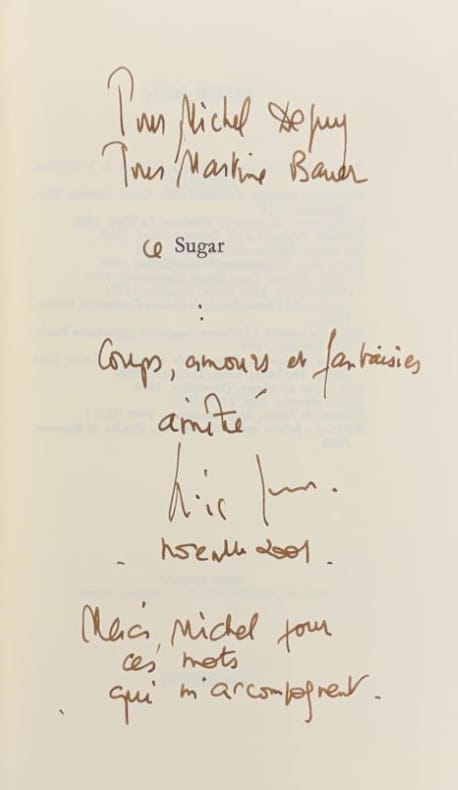 Pour Michel
Pour Martine Bauer
ce Sugar
:
Coups, amours et fantaisies
amitié
novembre 2001.
Merci, Michel pour
ces mots
qui m'accompagnent.